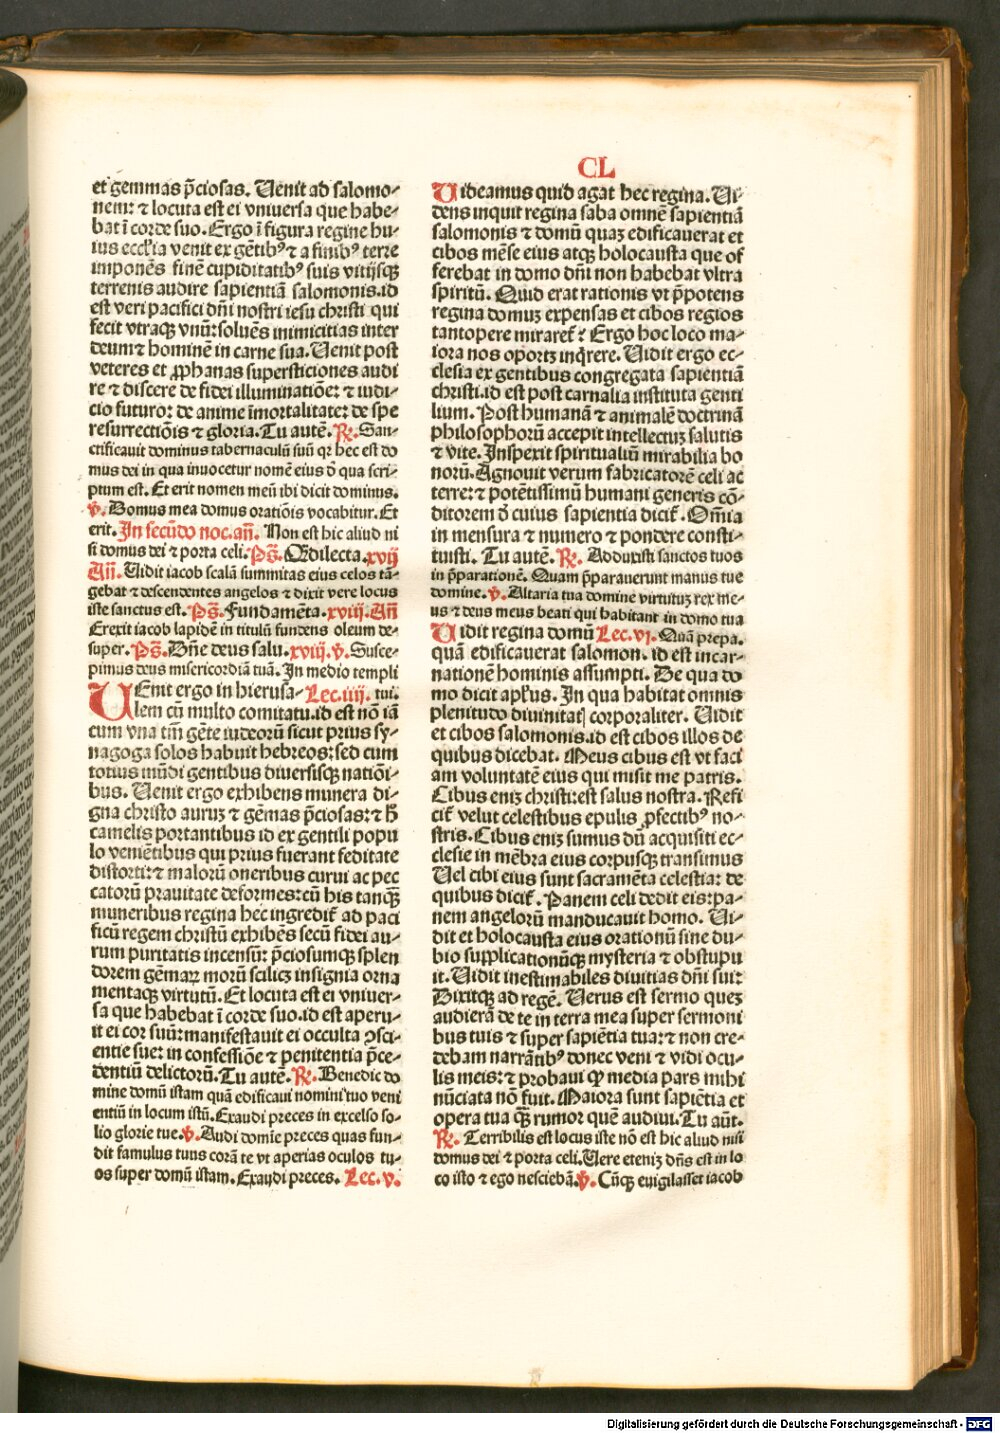 CL
et gemmas p̄ciosas. Uenit ad salomo⸗
nem: ⁊ locuta est ei vniuersa que habe⸗
bat ī corde suo. Ergo ī figura regine hu⸗
ius eccl'ia venit ex gētibꝰ ⁊ a finibꝰ terre
imponēs finē cupiditatibꝰ suis vitijsqꝫ
terrenis audire sapientiā salomonis.id
est veri pacifici dn̄i nostri iesu christi qui
fecit vtraqꝫ vnū: soluēs inimicitias inter
deum ⁊ hominē in carne sua. Uenit post
veteres et ꝓphanas supersticiones audi
re ⁊ discere de fidei illuminatiōe: ⁊ iudi⸗
cio futuro: de anime īmortalitate: de spe
resurrectiōis ⁊ gloria. Tu autē. ℟. San⸗
ctificauit dominus tabernaculū suū qr hec est do
mus dei in qua inuocetur nomē eius ō qua scri⸗
ptum est. Et erit nomen meū ibi dicit dominus.
℣. Domus mea domus oratiōis vocabitur. Et
erit. In secūdo noc. an̄. Non est hic aliud ni
si domus dei ⁊ porta celi. Ps̄. Q̄ dilecta. xvij
An̄. Uidit iacob scalā summitas eius celos tā⸗
gebat ⁊ descendentes angelos ⁊ dixit vere locus
iste sanctus est. Ps̄. Fundamēta. xviij. An̄
Erexit iacob lapidē in titulū fundens oleum de⸗
super. Ps̄. Dn̄e deus salu. xviij. ℣. Susce⸗
pimus deus misericordiā tuā. In medio templi
UEnit ergo in hierusa⸗ Lec. iiij. tui.
lem cū multo comitatu.id est nō iā
cum vna tm̄ gēte iudeorū sicut prius sy⸗
nagoga solos habuit hebreos: sed cum
totius mūdi gentibus diuersisqꝫ natiōi⸗
bus. Uenit ergo exhibens munera di⸗
gna christo auruꝫ ⁊ gēmas p̄ciosas: ⁊ h̄
camelis portantibus id ex gentili popu
lo veniētibus qui prius fuerant feditate
distorti: ⁊ malorū oneribus curui ac pec
catorū prauitate deformes: cū his tanqꝫ̄
muneribus regina hec ingredit᷑ ad paci
ficū regem christū exhibēs secū fidei au⸗
rum puritatis incensū: p̄ciosumqꝫ splen
dorem gēmaꝝ morū sciliꝫ insignia orna
mentaqꝫ virtutū. Et locuta est ei vniuer⸗
sa que habebat ī corde suo.id est aperu⸗
it ei cor suū: manifestauit ei occulta ꝯsci⸗
entie sue: in confessiōe ⁊ penitentia p̄ce⸗
dentiū delictorū. Tu autē. ℟. Benedic do
mine domū istam quā edificaui nomini tuo veni
entiū in locum istū. Exaudi preces in excelso so⸗
lio glorie tue. ℣. Audi domie preces quas fun⸗
dit famulus tuus corā te vt aperias oculos tu⸗
os super domū istam. Exaudi preces. Lec. v.
Uideamus quid agat hec regina. Ui⸗
dens inquit regina saba omnē sapientiā
salomonis ⁊ domū quaꝫ edificauerat et
cibos mēse eius atqꝫ holocausta que of
ferebat in domo dn̄i non habebat vltra
spiritū. Quid erat rationis vt p̄potens
regina domuꝫ expensas et cibos regios
tantopere miraret᷑? Ergo hoc loco ma⸗
iora nos oportꝫ inq̄rere. Uidit ergo ec⸗
clesia ex gentibus congregata sapientiā
christi.id est post carnalia instituta genti
lium. Post humanā ⁊ animalē doctrinā
philosophorū accepit intellectuꝫ salutis
⁊ vite. Inspexit spiritualiū mirabilia bo
norū. Agnouit verum fabricatorē celi ac
terre: ⁊ potētissimū humani generis cō⸗
ditorem ō cuius sapientia dicit᷑. Om̄ia
in mensura ⁊ numero ⁊ pondere consti⸗
tuisti. Tu autē. ℟. Adduxisti sanctos tuos
in p̄paratione. Quam p̄parauerunt manus tue
domine. ℣. Altaria tua domine virtutuꝫ rex me⸗
us ⁊ deus meus beati qui habitant in domo tua
Uidit regina domū Lec. vi. Quā prepa.
quā edificauerat salomon. id est incar⸗
nationē hominis assumpti. De qua do
mo dicit apl'us. In qua habitat omnis
plenitudo diuinitatꝭ corporaliter. Uidit
et cibos salomonis.id est cibos illos de
quibus dicebat. Meus cibus est vt faci
am voluntatē eius qui misit me patris.
Cibus eniꝫ christi: est salus nostra. Refi
cit᷑ velut celestibus epulis ꝓfectibꝰ no⸗
stris. Cibus eniꝫ sumus dū acquisiti ec⸗
clesie in mēbra eius corpusqꝫ transimus
Uel cibi eius sunt sacramēta celestia: de
quibus dicit᷑. Panem celi dedit eis: pa⸗
nem angelorū manducauit homo. Ui⸗
dit et holocausta eius orationū sine du⸗
bio supplicationūqꝫ mysteria ⁊ obstupu
it. Uidit inestimabiles diuitias dn̄i sui:
Dixitqꝫ ad regē. Uerus est sermo queꝫ
audierā de te in terra mea super sermoni
bus tuis ⁊ super sapiētia tua: ⁊ non cre⸗
debam narrātibꝰ donec veni ⁊ vidi ocu⸗
lis meis: ⁊ probaui ꝙ media pars mihi
nūciata nō fuit. Maiora sunt sapiētia et
opera tua qꝫ̄ rumor quē audiui. Tu aūt.
℟. Terribilis est locus iste nō est hic aliud nisi
domus dei ⁊ porta celi. Uere eteniꝫ dn̄s est in lo
co isto ⁊ ego nesciebā. ℣. Cūqꝫ euigilasset iacob
Digitalisierung gefördert durch die Deutsche Forschungsgemeinschaft - DFG